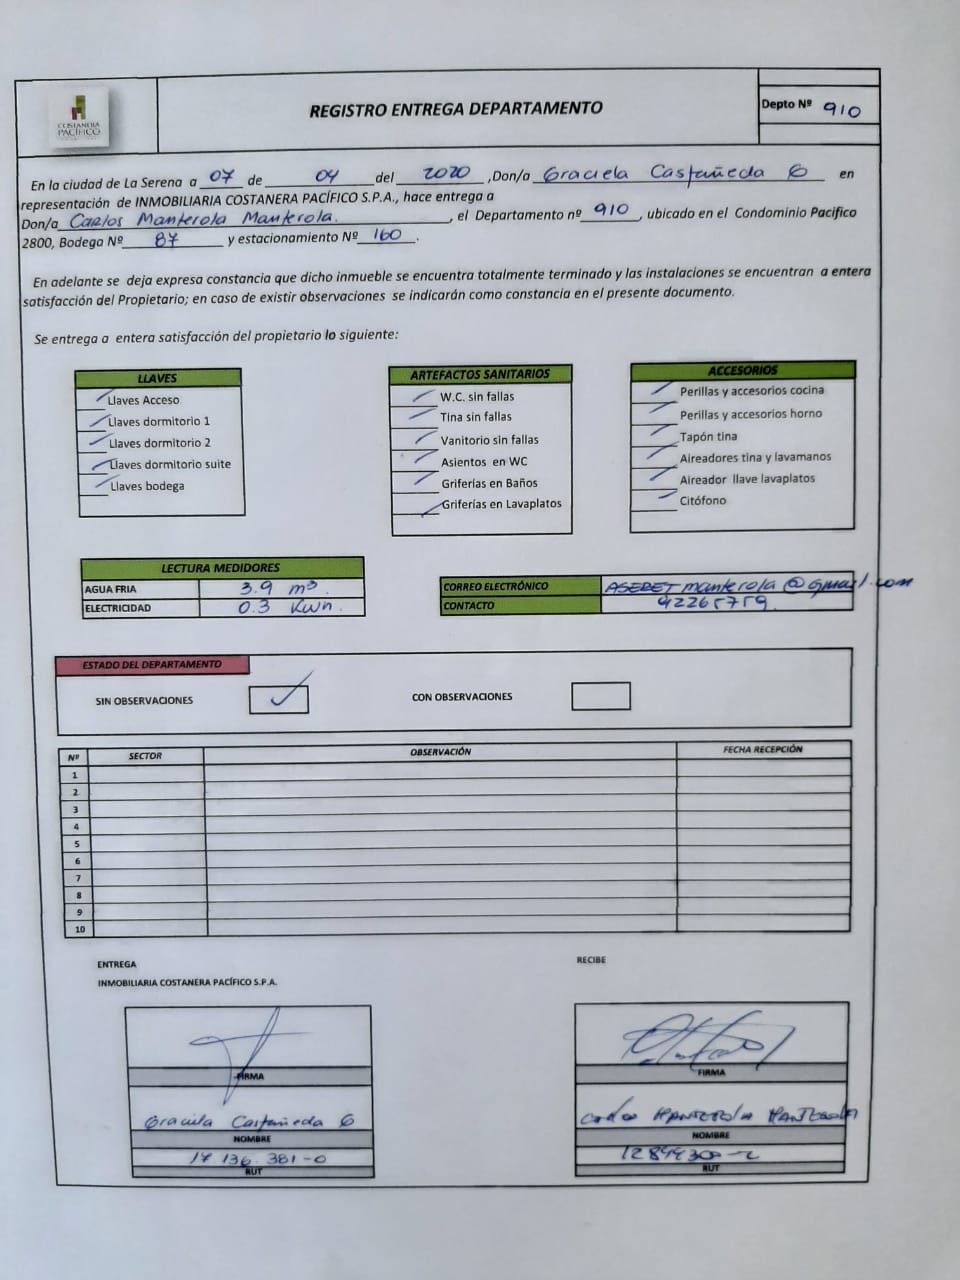 COSTANERA
PACÍFICO
REGISTRO ENTREGA DEPARTAMENTO
Depto Nº 910
En la ciudad de La Serena a 07 de 04 del 2020 ,Don/a Graciela Castañeda G en
representación de INMOBILIARIA COSTANERA PACÍFICO S.P.A., hace entrega a
Don/a Carlos Manterola Manterola. , el Departamento nº 910 , ubicado en el Condominio Pacifico
2800, Bodega Nº 87 y estacionamiento Nº 160 .
En adelante se deja expresa constancia que dicho inmueble se encuentra totalmente terminado y las instalaciones se encuentran a entera
satisfacción del Propietario; en caso de existir observaciones se indicarán como constancia en el presente documento.
Se entrega a entera satisfacción del propietario lo siguiente:
LLAVES
Llaves Acceso
Llaves dormitorio 1
Llaves dormitorio 2
Llaves dormitorio suite
Llaves bodega
ARTEFACTOS SANITARIOS
W.C. sin fallas
Tina sin fallas
Vanitorio sin fallas
Asientos en WC
Griferías en Baños
Griferías en Lavaplatos
ACCESORIOS
Perillas y accesorios cocina
Perillas y accesorios horno
Tapón tina
Aireadores tina y lavamanos
Aireador llave lavaplatos
Citófono
LECTURA MEDIDORES
AGUA FRIA 3.9 m³.
ELECTRICIDAD 0.3 Kwh.
CORREO ELECTRÓNICO manterola@gmail.com
CONTACTO 92265759
ESTADO DEL DEPARTAMENTO
SIN OBSERVACIONES
CON OBSERVACIONES
Nº SECTOR OBSERVACIÓN FECHA RECEPCIÓN
1
2
3
4
5
6
7
8
9
10
ENTREGA
INMOBILIARIA COSTANERA PACÍFICO S.P.A.
FIRMA
Graciela Castañeda G
NOMBRE
17.136.381-0
RUT
RECIBE
FIRMA
Carlos MANTEROLA MANTEROLA
NOMBRE
RUT